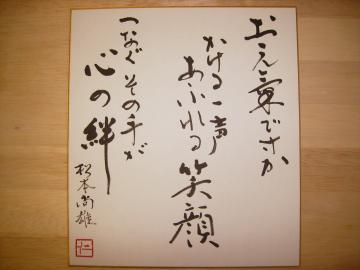 お元氣ですか
かける一声
あふれる笑顔
つなぐその手が
心の絆
松本尚雄
仁